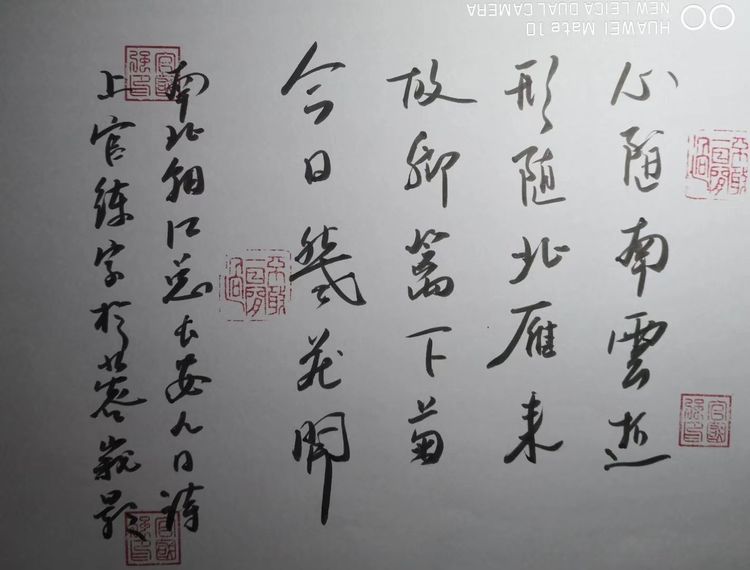 心随南雲逝
形随北雁来
故鄉篱下菊
今日幾花開
南北朝江总长安九日詩
上官練字於
HUAWEI Mate 10
NEW LEICA DUAL CAMERA